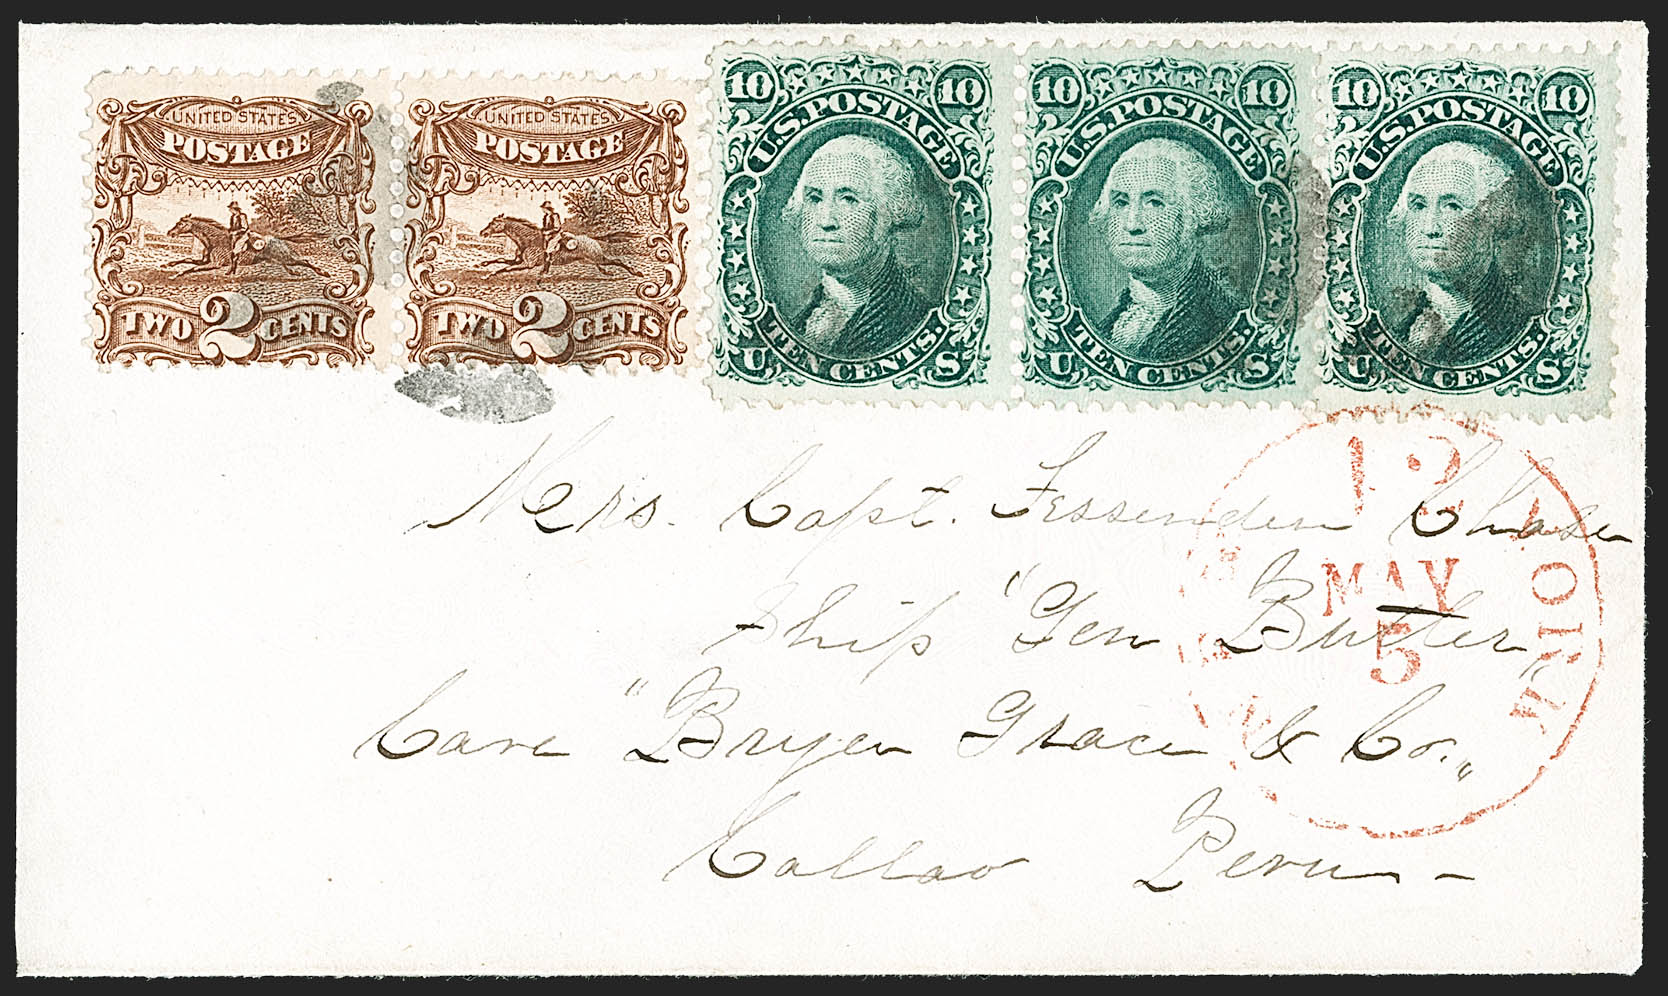 UNITED STATES
POSTAGE
TWO 2 CENTS
UNITED STATES
POSTAGE
TWO 2 CENTS
10 10
U.S. POSTAGE
TEN CENTS.
U S
10 10
U.S. POSTAGE
TEN CENTS.
U S
10 10
U.S. POSTAGE
TEN CENTS.
U S
Mrs. Capt. Fessenden Chase
Ship "Gen Butler"
Care "Bryce Grace & Co."
Callao Peru -
12
MAY
5